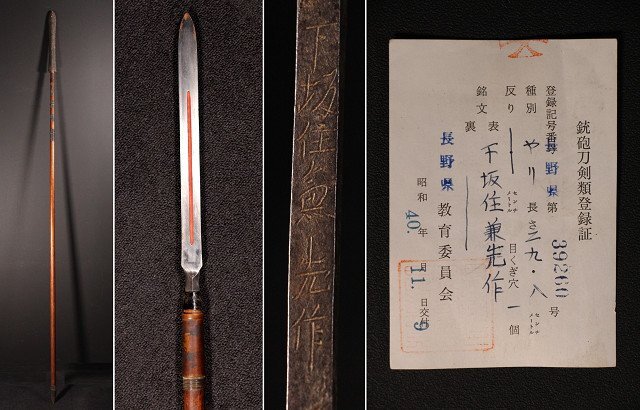 下坂住兼先作
銃砲刀剣類登録証
登録記号番号 長野県 第 39260 号
種別 やり 長さ 二九・八 センチメートル
反り センチメートル 目くぎ穴 一 個
銘文 表 下坂住兼先作
裏
長野県教育委員会
昭和40年11月9日交付